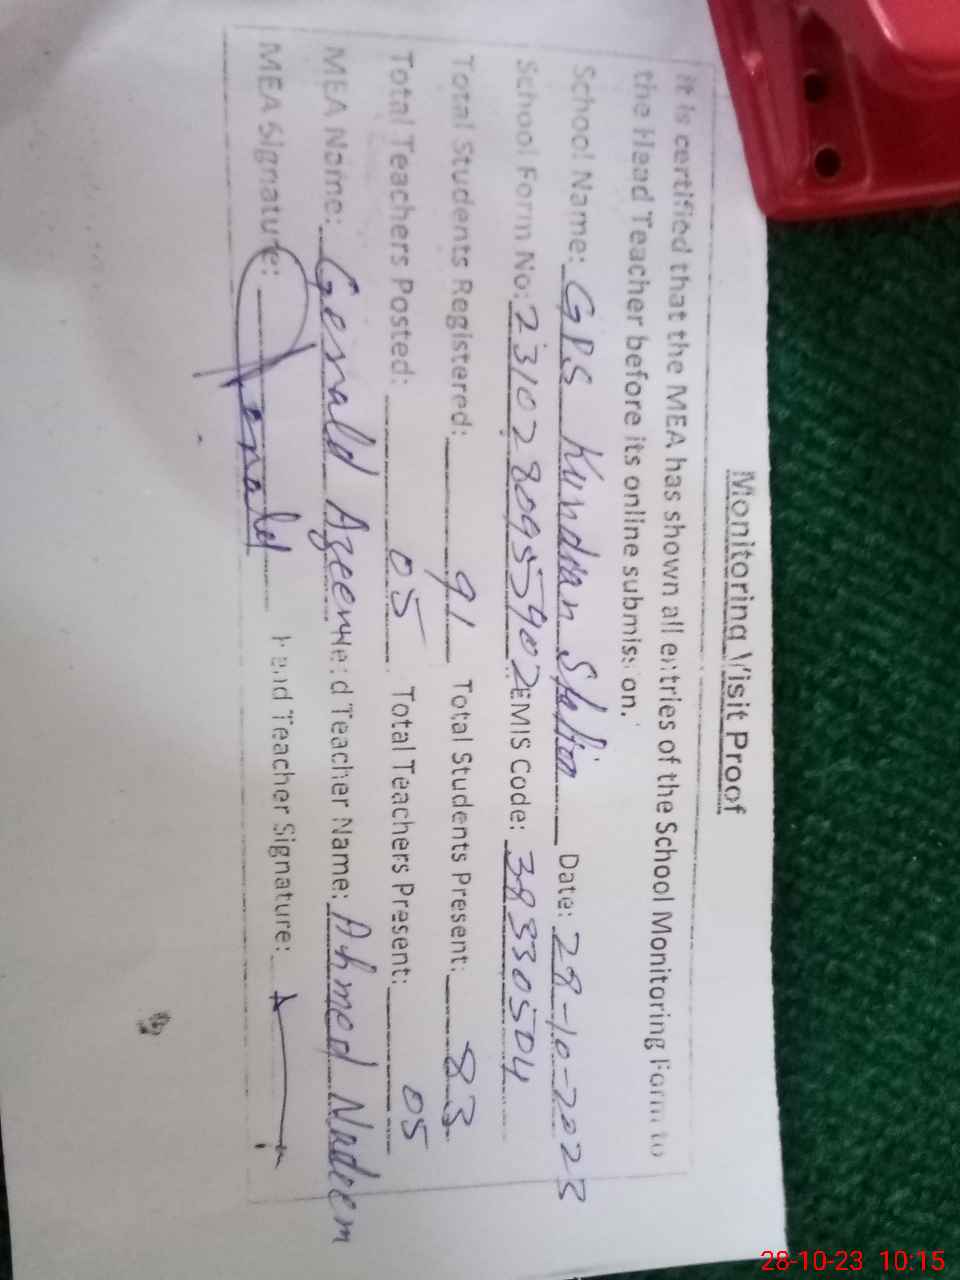 Monitoring Visit Proof
It is certified that the MEA has shown all entries of the School Monitoring Form to
the Head Teacher before its online submission.
School Name: GPS Kundian Station Date: 28-10-2023
School Form No: 2310280955902 EMIS Code: 38330504
Total Students Registered: 91 Total Students Present: 83
Total Teachers Posted: 05 Total Teachers Present: 05
MEA Name: Gerald Azeem Head Teacher Name: Ahmed Nadeem
MEA Signature: Gerald Head Teacher Signature:
28-10-23 10:15